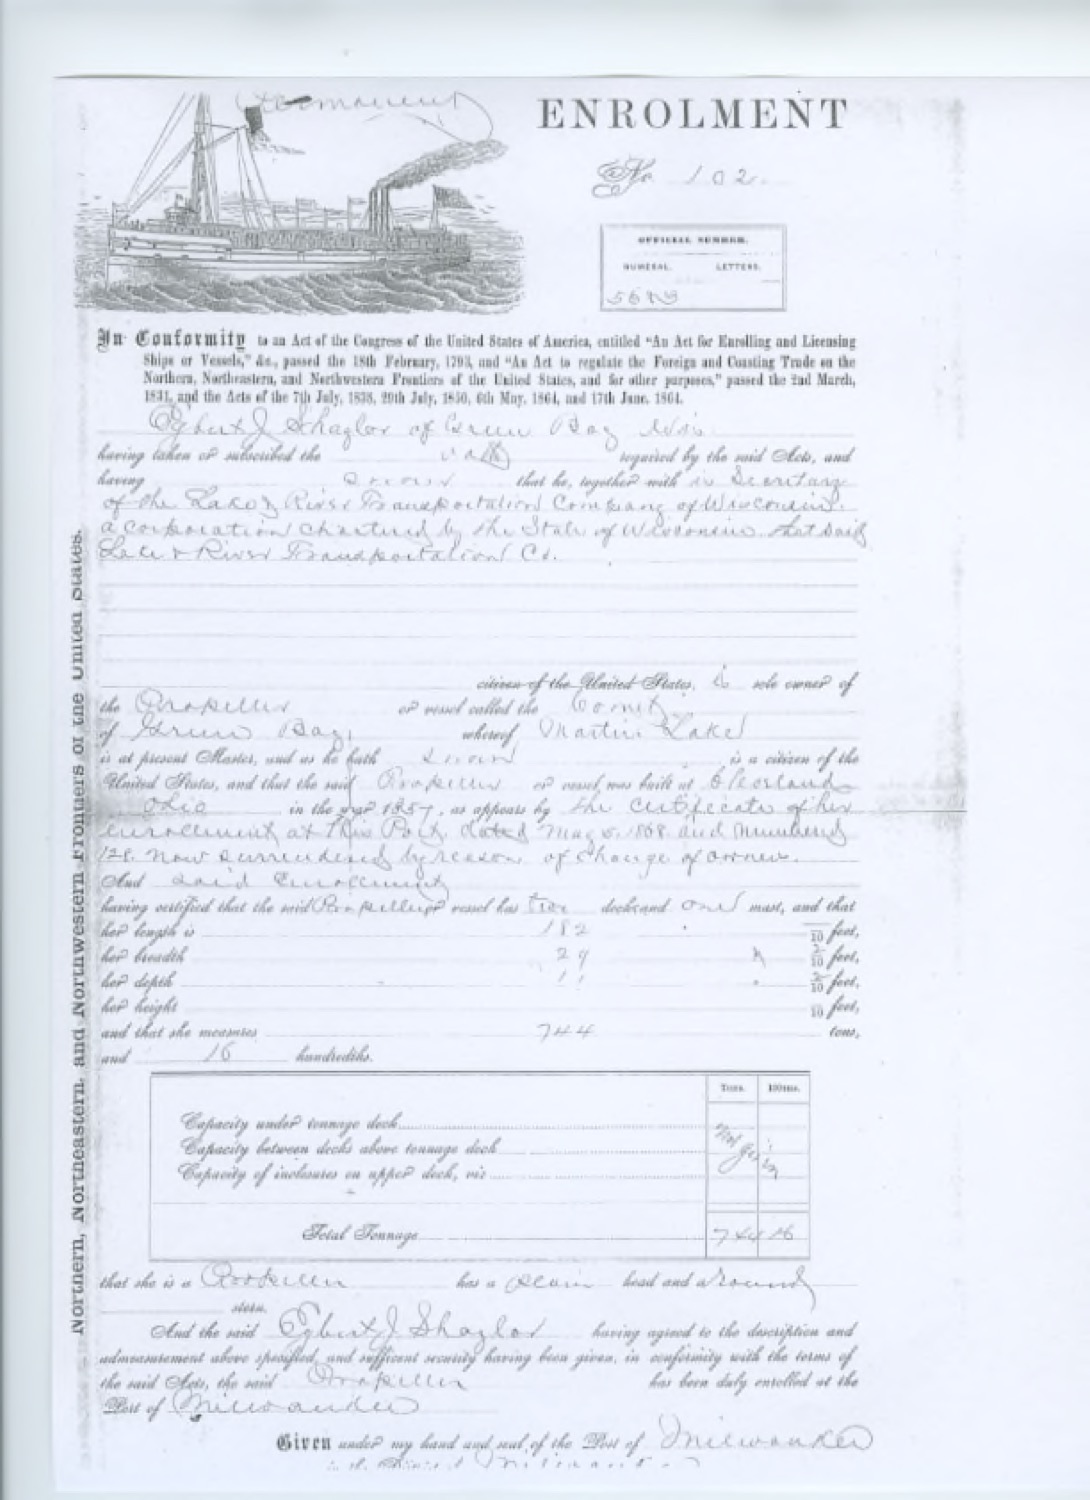 Permanent
ENROLMENT
No. 102.
OFFICIAL NUMBER.
NUMERAL. LETTERS.
In Conformity to an Act of the Congress of the United States of America, entitled "An Act for Enrolling and Licensing
Ships or Vessels," &c., passed the 18th February, 1793, and "An Act to regulate the Foreign and Coasting Trade on the
Northern, Northeastern, and Northwestern Frontiers of the United States, and for other purposes," passed the 2nd March,
1831, and the Acts of the 7th July, 1838, 29th July, 1850, 6th May, 1864, and 17th June, 1864.
Egbert J Shaylor of Green Bay Wis.
having taken or subscribed the oath required by the said Acts, and
having sworn that he, together with is Secretary
of the Lake & River Transportation Company of Wisconsin.
a corporation chartered by the State of Wisconsin. that said
Lake & River Transportation Co.
citizen of the United States, is sole owner of
the Propeller or vessel called the Comet
of Green Bay, whereof Martin Lake
is at present Master, and as he hath sworn is a citizen of the
United States, and that the said Propeller or vessel was built at Cleveland
Ohio in the year 1857, as appears by the certificate of her
enrollment at this Port, dated May 6, 1868 and numbered
128. now surrendered by reason of change of owners.
And said Enrollment
having certified that the said Propeller or vessel has two decks and one mast, and that
her length is 182 10 feet,
her breadth 29 2/10 feet,
her depth 11 2/10 feet,
her height 10 feet,
and that she measures 744 tons,
and 16 hundredths.
Tons. 100ths.
Capacity under tonnage deck
Capacity between decks above tonnage deck
Capacity of inclosures on upper deck, viz
Not given
Total Tonnage 744 16
that she is a Propeller has a plain head and a round
stern.
And the said Egbert J Shaylor having agreed to the description and
admeasurement above specified, and sufficient security having been given, in conformity with the terms of
the said Acts, the said Propeller has been duly enrolled at the
Port of Milwaukee
Given under my hand and seal, of the Port of Milwaukee
Northern, Northeastern, and Northwestern Frontiers of the United States.